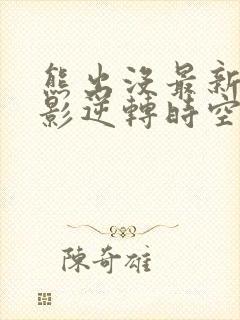 熊出沒最新
影逆轉時空
陳奇雄